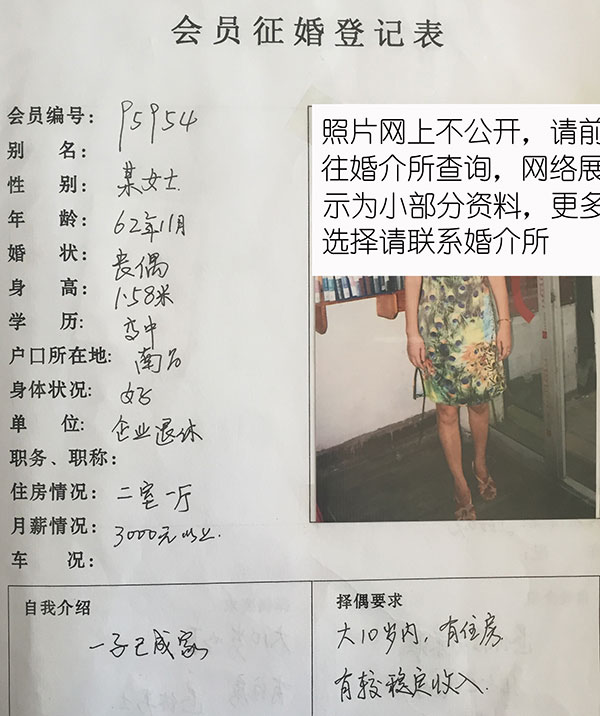 会员征婚登记表
会员编号: P5954
别 名:
性 别: 某女士
年 龄: 62年11月
婚 状: 丧偶
身 高: 1.58米
学 历: 高中
户口所在地: 南昌
身体状况: 好
单 位: 企业退休
职务、职称:
住房情况: 二室一厅
月薪情况: 3000元以上.
车 况:
照片网上不公开，请前
往婚介所查询，网络展
示为小部分资料，更多
选择请联系婚介所
自我介绍
一子已成家
择偶要求
大10岁内，有住房
有较稳定收入.